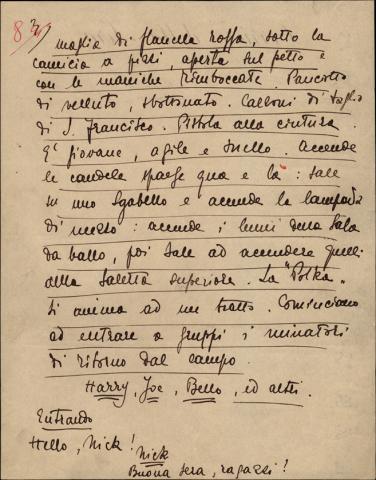 8 3)
maglia di flanella rossa, sotto la
camicia a fiori, aperta sul petto e
con le maniche rimboccate. Panciotto
di velluto, sbottonato. Calzoni di taglio
di S. Francisco. Pistola alla cintura.
E' giovane, agile e snello. Accende
le candele sparse qua e là: sale
su uno sgabello e accende la lampada
di mezzo: accende i lumi della sala
da ballo, poi sale ad accendere quelli
alla saletta superiore. La "Polka"
si anima ad un tratto. Cominciano
ad entrare a gruppi i minatori
di ritorno dal campo.
Harry, Joe, Bello, ed altri.
Entrando
Hello, Nick!
Nick
Buona sera, ragazzi!